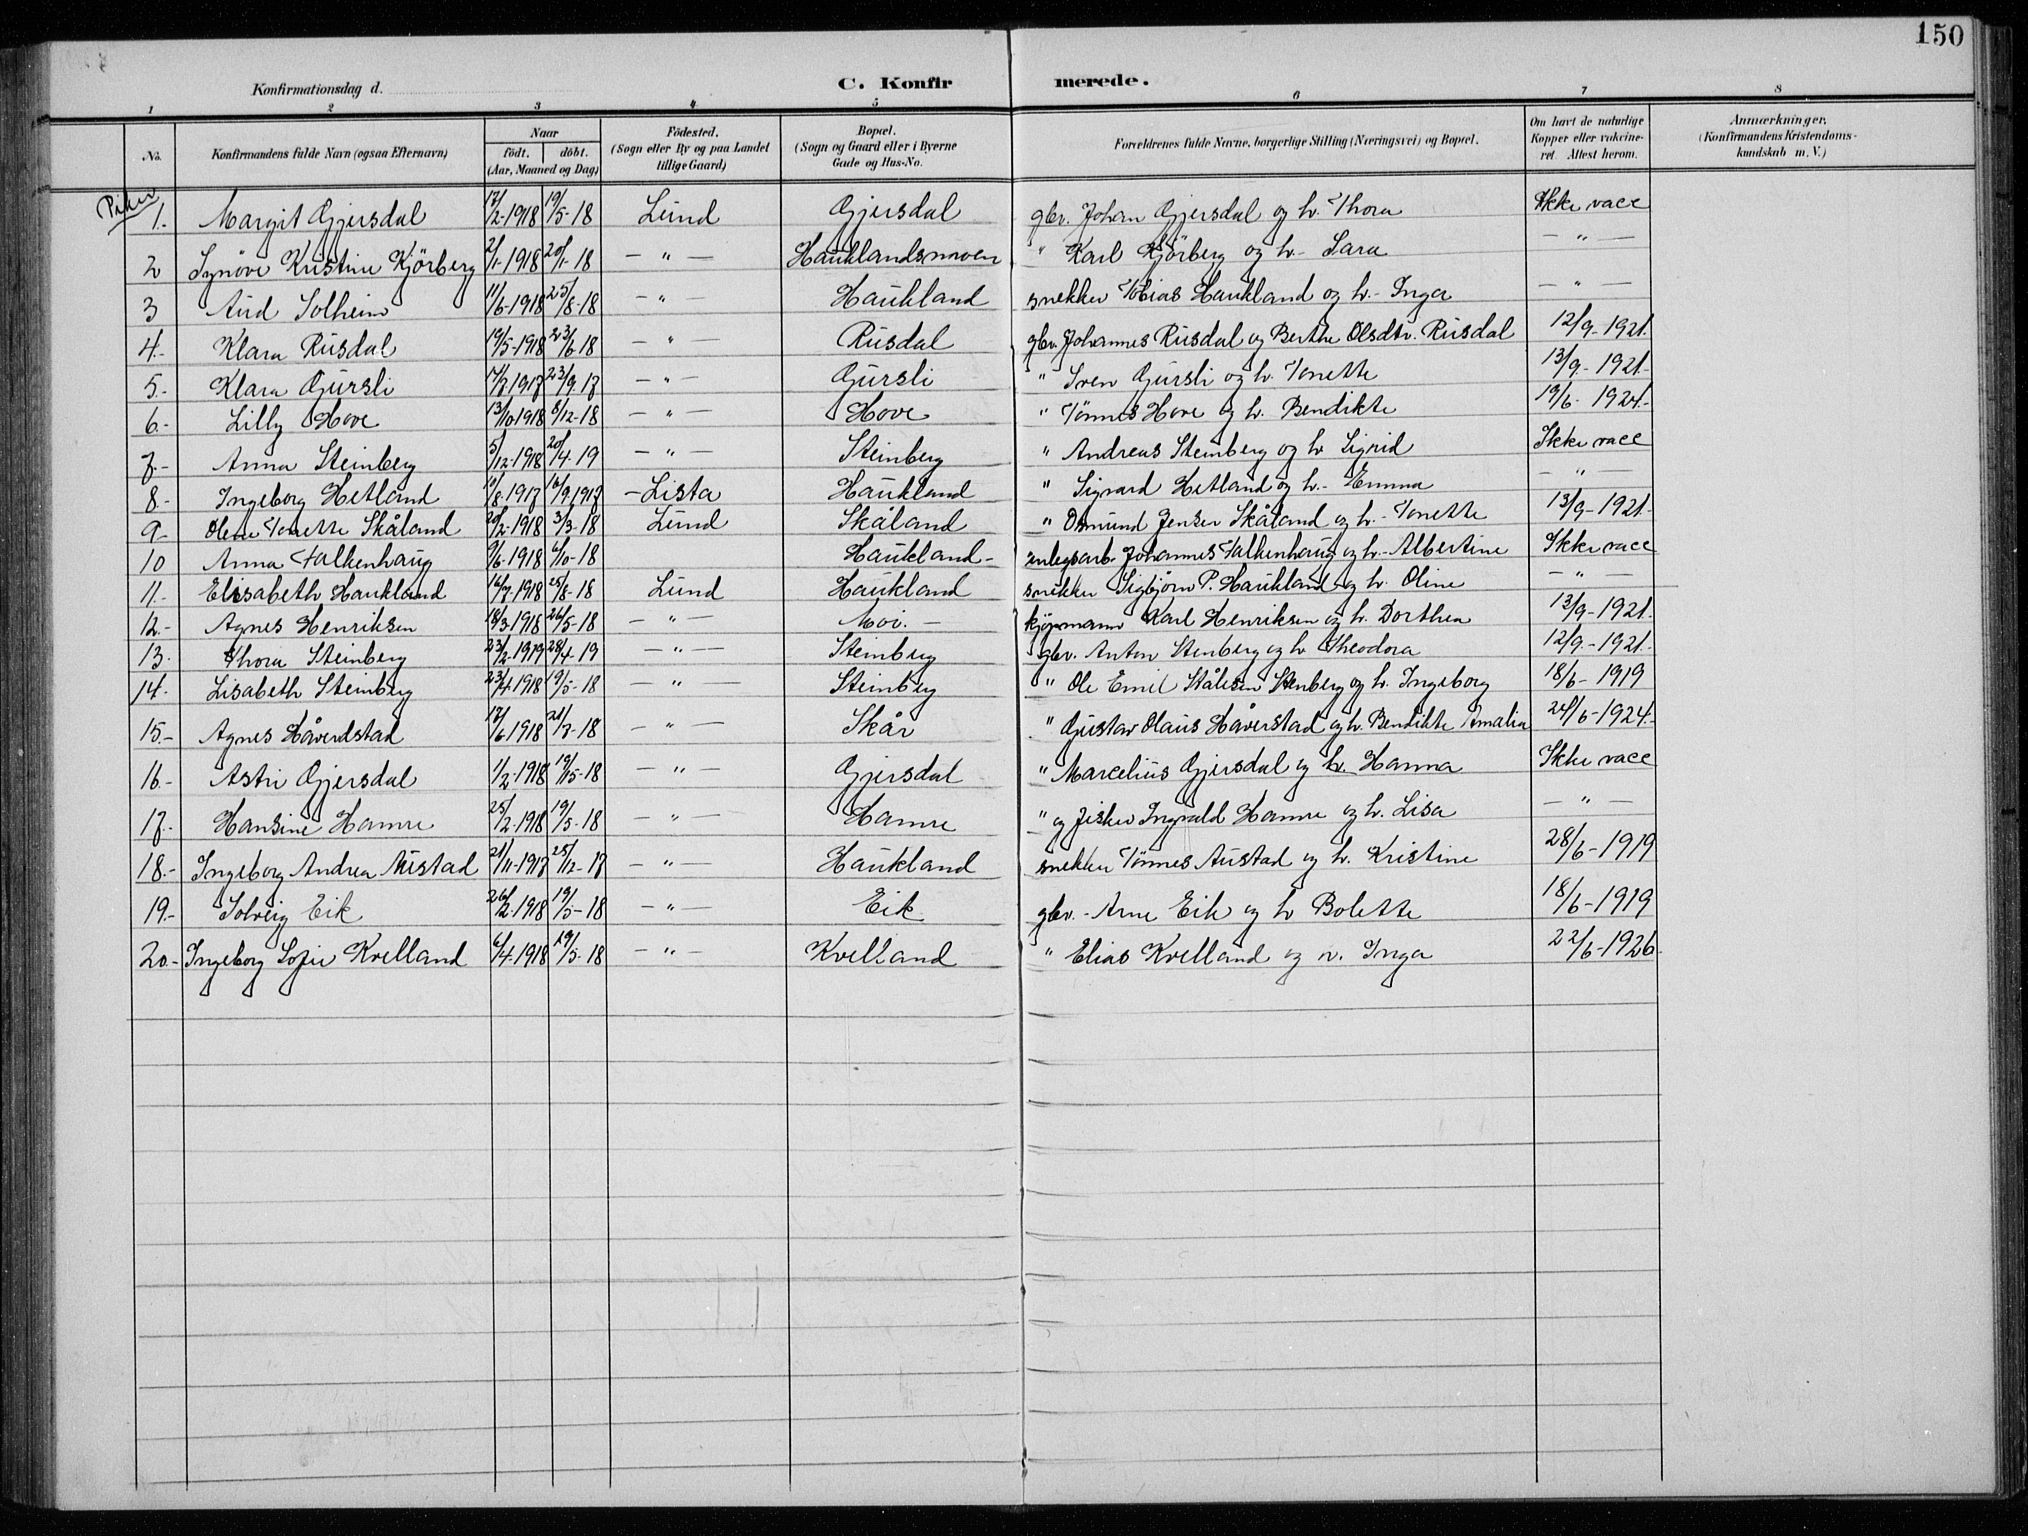 150
Konfirmationsdag d. C. Konfirmerede.
1 2 3 4 5 6 7 8
No. Konfirmandens fulde Navn (ogsaa Efternavn) Naar födt. döbt. (Aar, Maaned og Dag) Födested. (Sogn eller By og paa Landet tillige Gaard) Bopæl. (Sogn og Gaard eller i Byerne Gade og Hus-No. Forældrenes fulde Navne, borgerlige Stilling (Næringsvei) og Bopæl. Om havt de naturlige Kopper eller vakcineret. Attest herom. Anmærkninger. (Konfirmandens Kristendomskundskab m. V.)
Piker
1. Margit Gjersdal 17/2-1918 19/5-18 Lund Gjersdal gbr. Johan Gjersdal og h. Thora Ikke vacc
2 Synöve Kristine Kjörberg 2/1-1918 20/1-18 — " — Hauklandsmoen " Karl Kjörberg og h. Sara — " —
3 Aud Solheim 11/6-1918 25/8-18 — " — Haukland snekker Tobias Haukland og h. Inga — " —
4.- Klara Rusdal 19/5-1918 23/6-18 — " — Rusdal gbr. Johannes Rusdal og Berthe Olsdtr. Rusdal 12/9-1921.
5.- Klara Gursli 17/7 1917 23/9 17 — " — Gursli " Sven Gursli og h. Tonette 13/9-1921.
6.- Lilly Hove 13/10-1918 8/12-18 — " — Hove " Tönnes Hove og h. Bendikte 19/6-1924.-
7.- Anna Steinberg 5/12-1918 20/4-19 — " — Steinberg " Andreas Steinberg og h Sigrid Ikke vacc
8.- Ingeborg Hetland 10/8-1917 16/9 1917 - Lista Haukland " Sigvard Hetland og h.- Emma — " —
9- Olene Tonette Skåland 20/2-1918 3/3-18 Lund Skåland " Osmund Jensen Skåland og h.- Tonette 13/9-1921-
10 Anna Falkenhaug 9/6-1918 6/10-18 Haukland- anlegsarb. Johannes Falkenhaug og h.- Albertine Ikke vacc
11.- Elisabeth Haukland 16/7-1918 25/8-18 Lund Haukland snekker Sigbjörn P. Haukland og h. Oline — " —
12.- Agnes Henriksen 18/3-1918 26/5-18 — " — Moi.- kjøpmann Karl Henriksen og h. Dorthea 13/9-1921.
13. Thora Steinberg 23/2-1919 28/4-19 — " — Steinberg gbr. Anton Stenberg og h Theodora 12/9-1921.-
14.- Lisabeth Steinberg 23/4 1918 19/5-18 — " — Steinberg " Ole Emil Stålesen Stenberg og h. Ingeborg 18/6-1919
15.- Agnes Håverdstad 17/6 1918 21/7-18 — " — Skår " Gustav Olaus Håverstad og h. Bendikte Amalia 24/6-1924-
16.- Astri Gjersdal 1/2-1918 19/5-18 — " — Gjersdal " Marcelius Gjersdal og h. Hanna Ikke vacc
17.- Hansine Hamre 25/2-1918 19/5-18 — " — Hamre " og fisker Ingvald Hamre og h. Lisa — " —
18.- Ingeborg Andrea Austad 21/11-1917 25/12-17 — " — Haukland snekker Tönnes Austad og h. Kristine 28/6-1919
19.- Solveig Eik 26/2-1918 19/5-18 — " — Eik gbr.- Arne Eik og h Bolette 18/6-1919
20.- Ingeborg Sofie Kvelland 6/4-1918 19/5-18 — " — Kvelland " Elias Kvelland og h. Inga 22/6-1926-